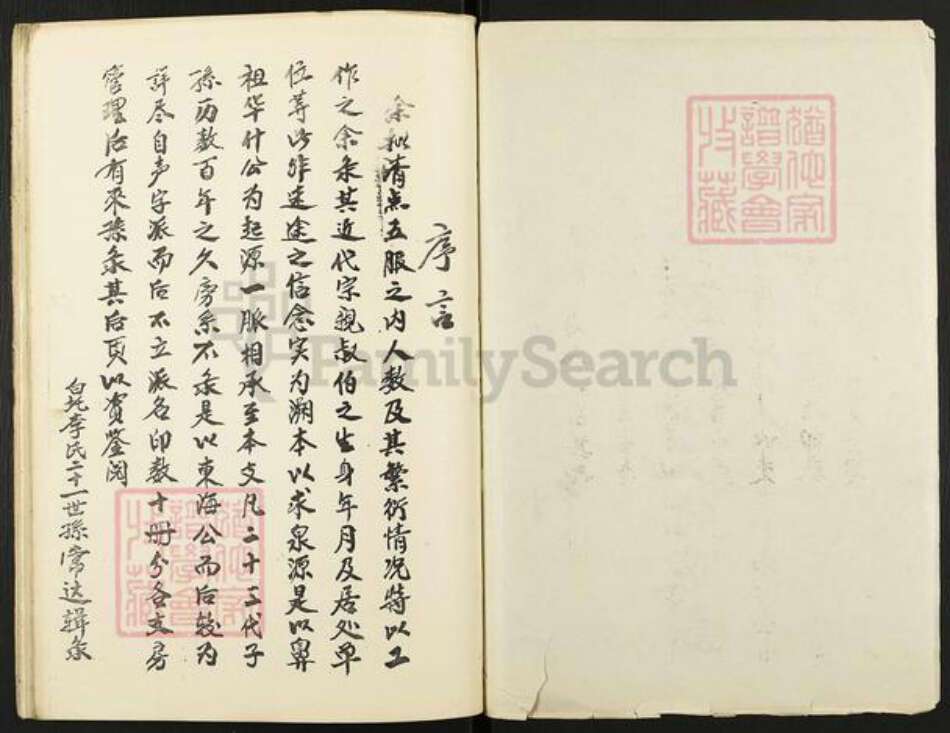 序言
余拟清点五服之内人数及其繁衍情况特以工
作之余录其近代宗亲叔伯之生身年月及居处单
位等此非迷途之信念实为溯本以求泉源是以鼻
祖华什公为起源一脈相承至本文凡二十三代子
孫历数百年之久旁系不录是以東海公而后较为
詳尽自声字派而后不立派名印数十册分各支房
管理后有來孫录其后頁以资鉴阅
白圫李氏二十一世孫常达辑录
猶他家
譜學會
收藏
猶他家
譜學會
收藏
FamilySearch